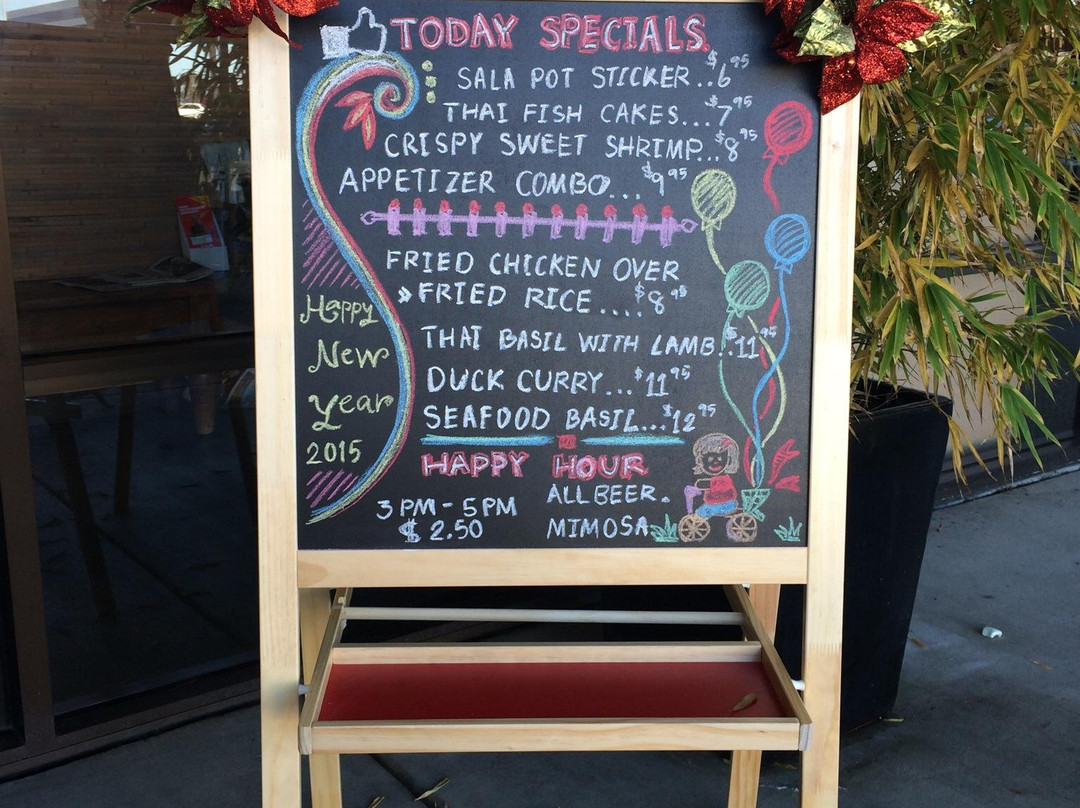 TODAY SPECIALS.
SALA POT STICKER..$6.95
THAI FISH CAKES...$7.95
CRISPY SWEET SHRIMP...$8.95
APPETIZER COMBO...$9.95
FRIED CHICKEN OVER
» FRIED RICE....$8.95
THAI BASIL WITH LAMB..$11.95
DUCK CURRY...$11.95
SEAFOOD BASIL...$12.95
Happy
New
Year
2015
HAPPY HOUR
3 PM - 5 PM
$ 2.50
ALL BEER.
MIMOSA